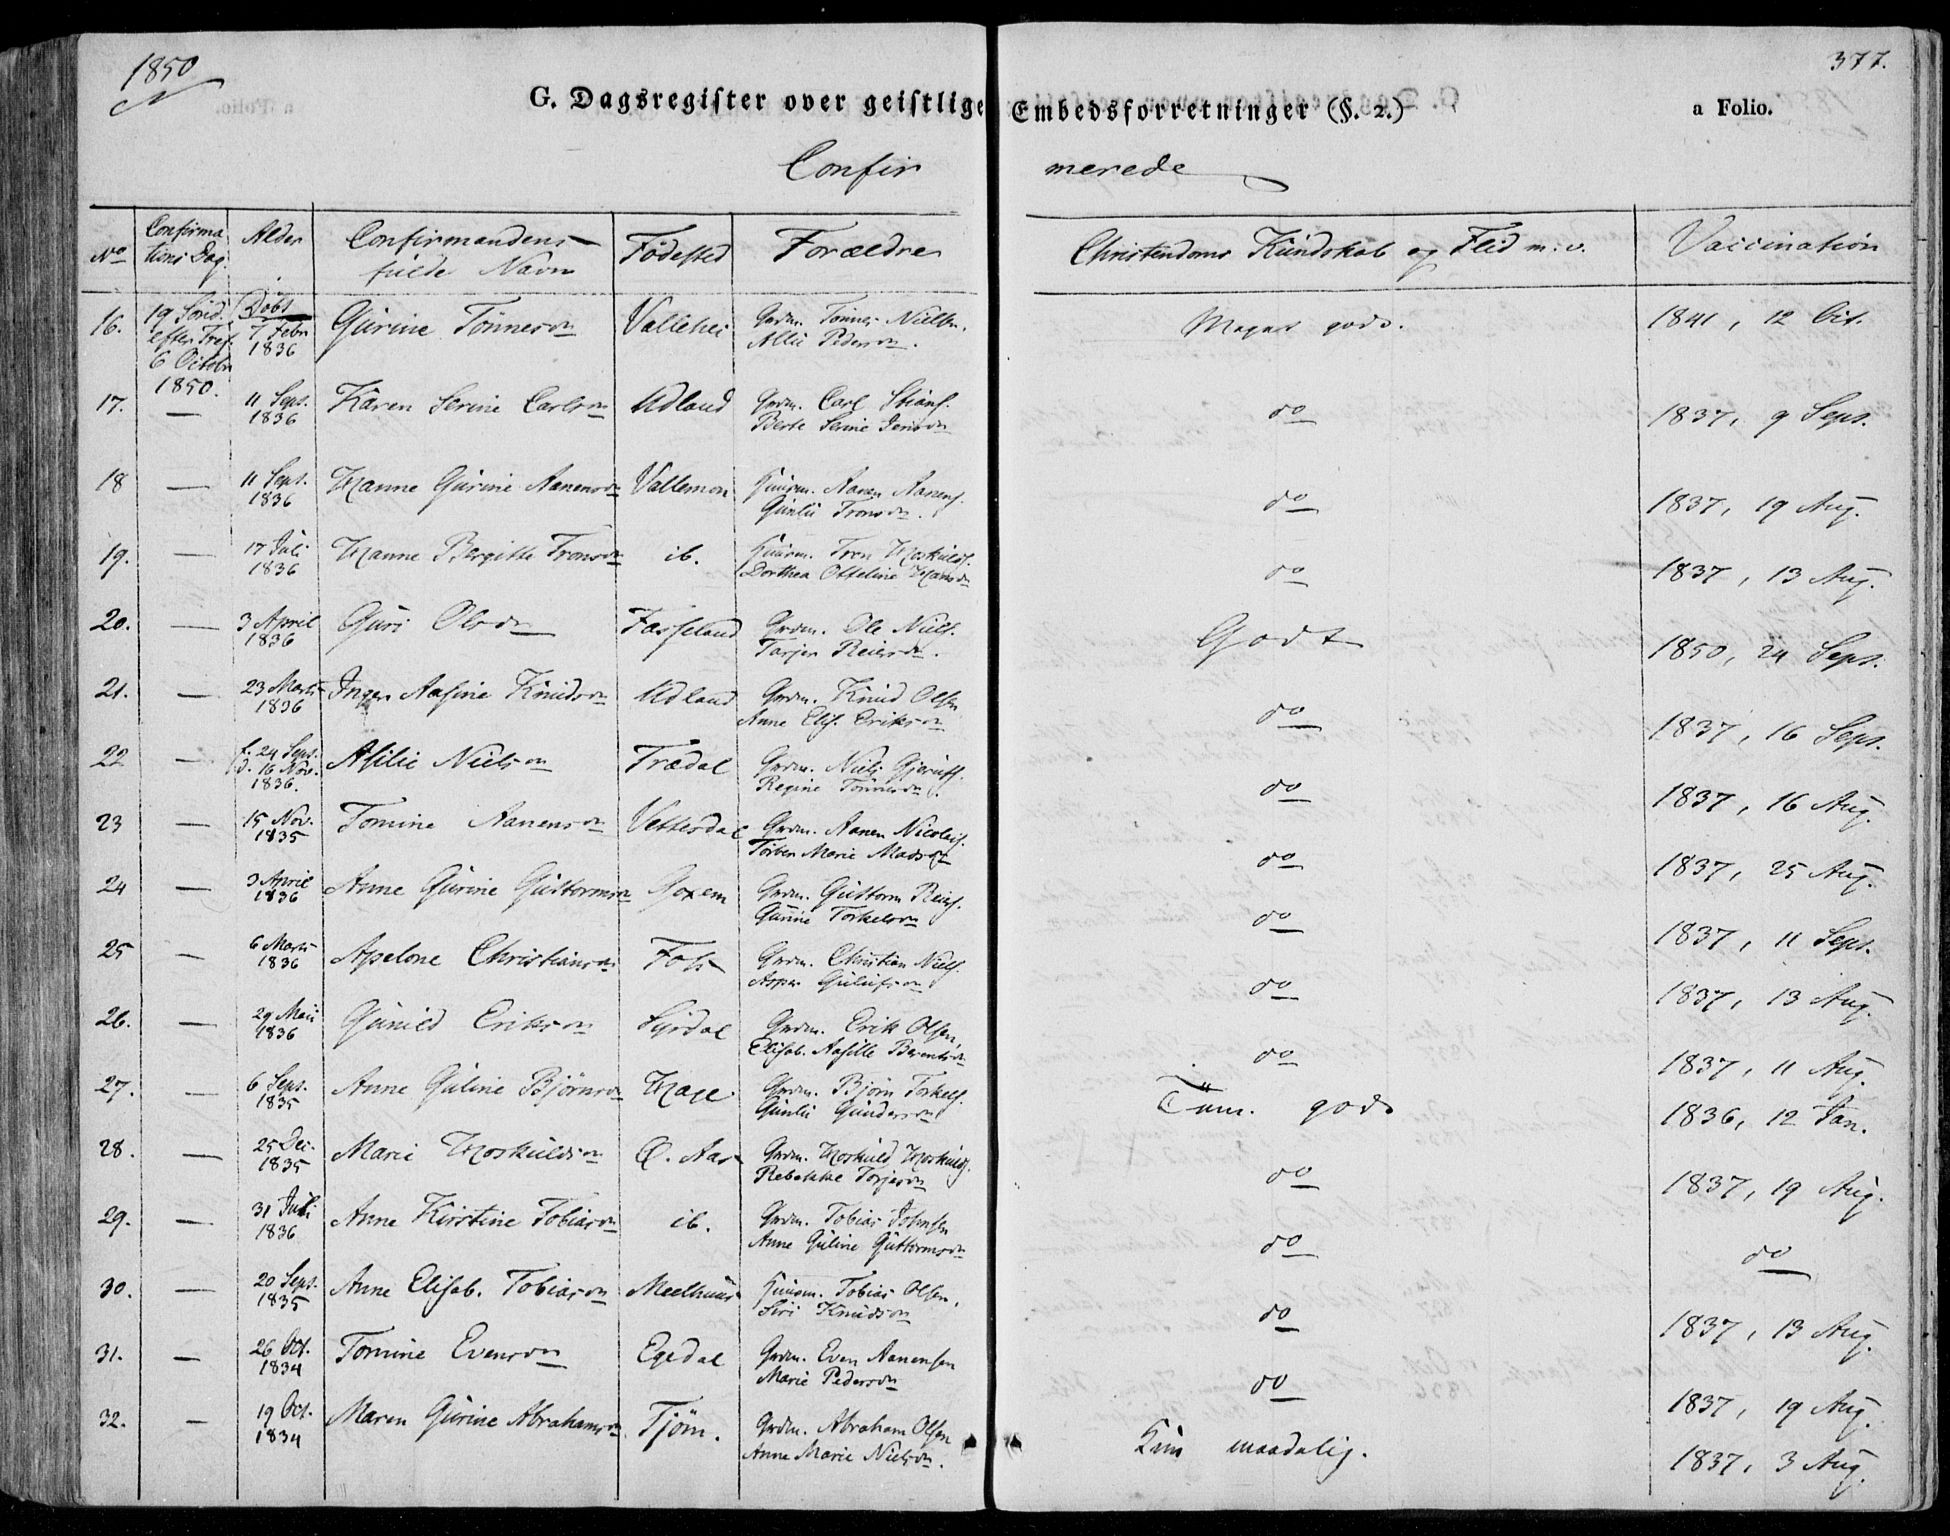 1850
377.
G. Dagsregister over geistlige Embedsforretninger (§. 2.)
a Folio.
Confirmerede
No Confirmations Dag. Alder Confirmandens fulde Navn Fødested Forældre Christendoms Kundskab og Flid m: v. Vaccination
16. 19 Sönd. efter Tref. 6 Octobr 1850. Døbt 7 Febr 1836 Gurine Tønnesdn Vallehei Grdm. Tønnes Nielsen, Allie Pedersdn. Meget godt. 1841, 12 Oct.
17. — 11 Sept. 1836 Karen Serine Carlsdn Udland Grdm. Carl Stians. Berte Serine Jensdn do 1837, 9 Sept.
18 — 11 Sept. 1836 Hanne Gurine Aanensdn Vallemon Huusm. Aanen Aanens. Gunlü Tronsdn. do 1837, 19 Aug.
19. — 17 Juli 1836 Hanne Bergitte Tronsdn ib. Huusm. Tron Hoskulds. Dorthea Otteline Hansdn do 1837, 13 Aug.
20. — 3 April 1836 Guri Olsdn Fasseland Grdm. Ole Niels. Tarjer Reiersdn. Godt 1850, 24 Sept.
21. — 23 Marts 1836 Inger Aasine Knudsdn Udland Grdm. Knud Olsen Anne Elis. Eriksdn do 1837, 16 Sept.
22 — f. 24 Sept. d. 16 Nov. 1836. Asilie Nielsdn Trædal Grdm. Niels Gjerulfs. Regine Tønnesdn. do 1837, 16 Aug.
23 — 15 Nov. 1835 Tomine Aanensdn Vettesdal Grdm. Aanen Nicolais. Torber Marie Madsdn do 1837, 25 Aug.
24 — 3 April 1836 Anne Gurine Guttormsdn Goxem Grdm. Guttorm Reiers. Gunie Torkelsdn do 1837, 11 Sept.
25 — 6 Marts 1836 Apelone Christiansdn Foss Grdm. Christian Niels. Asper Gulufsdn do 1837, 13 Aug.
26. — 29 Mai 1836 Gunild Eriksdn Syrdal Grdm. Erik Olsen, Elisab. Aasille Berentsdn do 1837, 11 Aug.
27. — 6 Sept. 1835 Anne Guline Bjørnsdn Hage Grdm. Bjørn Torkels. Gunlü Gundersdn Tem. godt 1836, 12 Jan.
28. — 25 Dec. 1835 Marie Hoskuldsdn Ø. Aas Grdm. Hoskuld Hoskulds. Rebekke Torjesdn do 1837, 19 Aug.
29. — 31 Juli 1836 Anne Kirstine Tobiasdn ib. Grdm. Tobias Johnsen Anne Guline Guttormsdn do do
30. — 20 Sept. 1835 Anne Elisab. Tobiasdn Meelhuus Huusm. Tobias Olsen, Siri Knudsdn do 1837, 13 Aug.
31. — 26 Oct. 1834 Tomine Evensdn Egedal Grdm. Even Aanensen Marie Pedersdn do 1837, 19 Aug.
32. — 19 Oct. 1834 Maren Gurine Abrahamsdn Tjøm. Grdm. Abraham Olsen Anne Marie Nielsdn. Kun maadelig. 1837, 3 Aug.